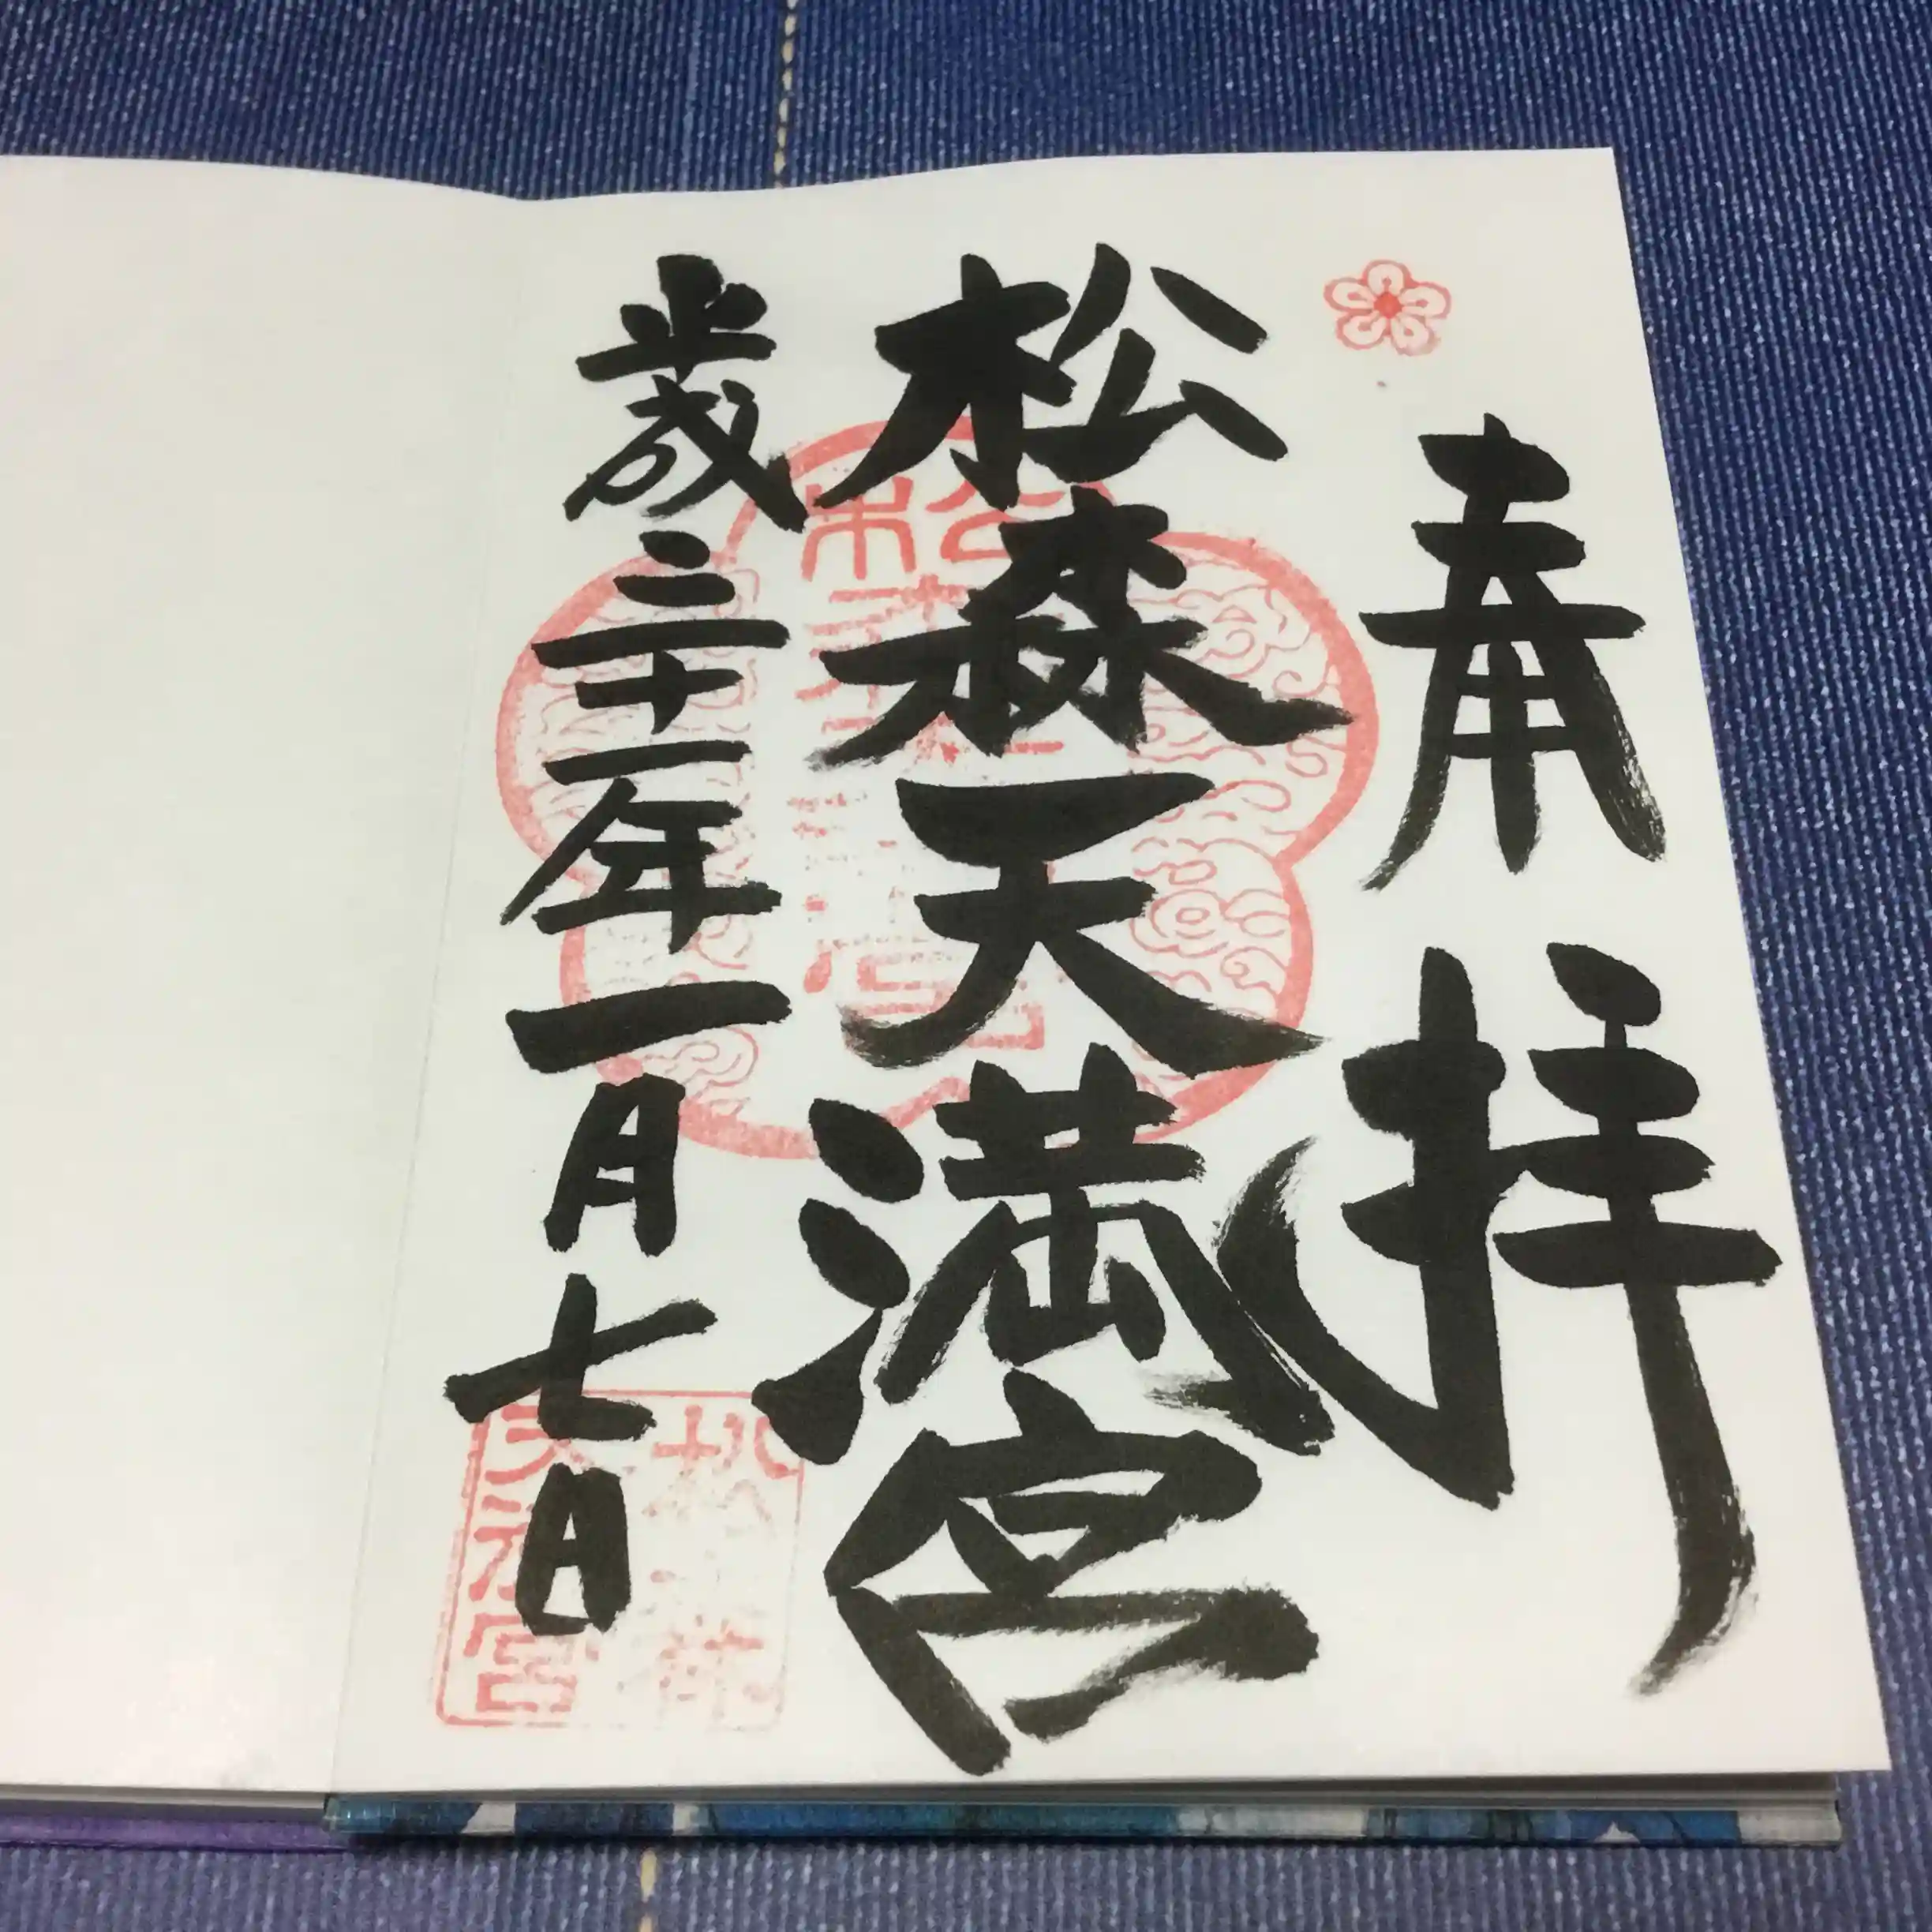 奉拝
松森天満宮
歳三十一年一月七日
松森
天満宮